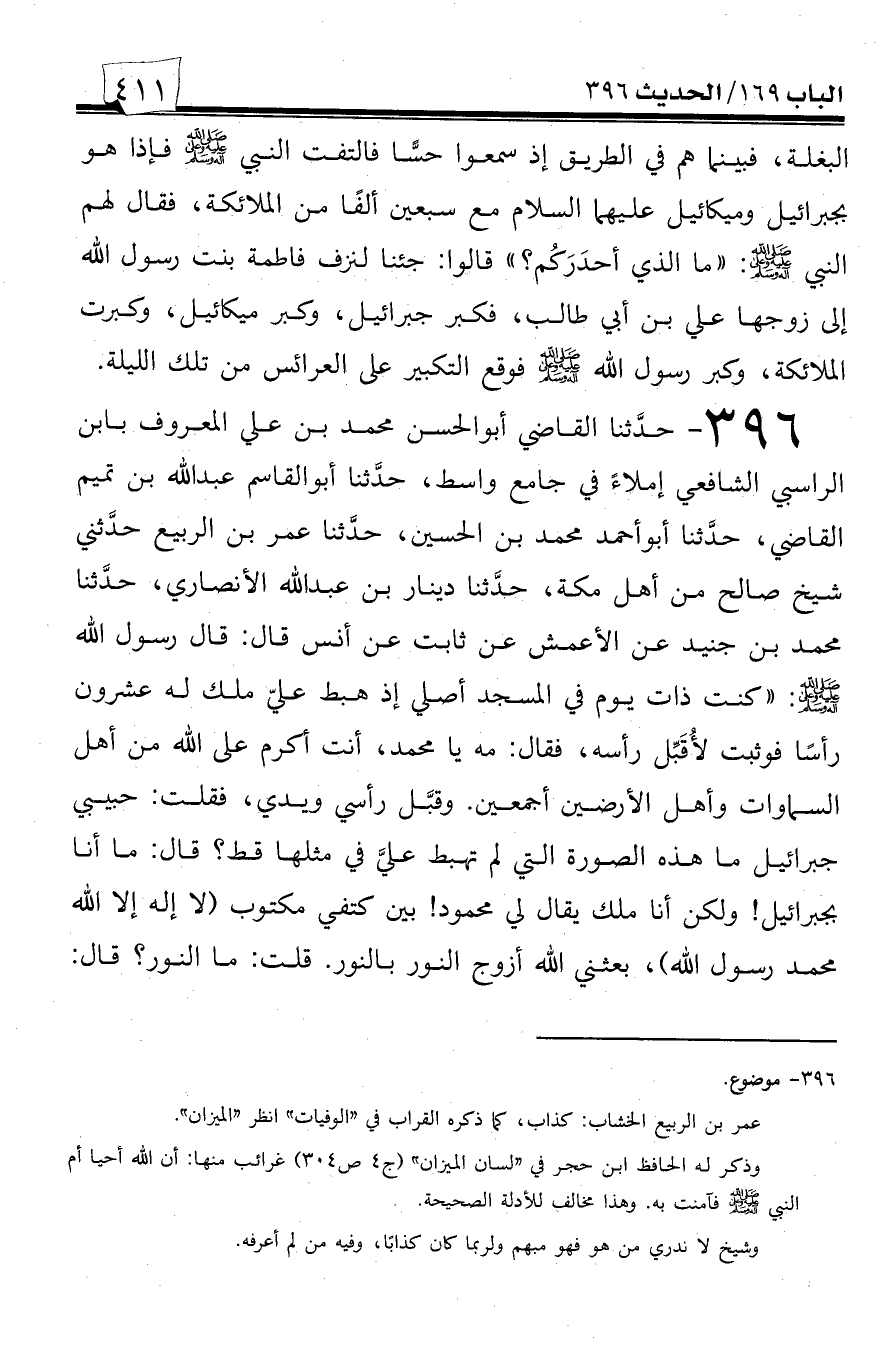 الباب ١٦٩/الحديث ٣٩٦
٤١١
البغلة، فبينما هم في الطريق إذ سمعوا حسًّا فالتفت النبي ﷺ فإذا هو
بجبرائيل وميكائيل عليهما السلام مع سبعين ألفًا من الملائكة، فقال لهم
النبي ﷺ: «ما الذي أحدَرَكُم؟» قالوا: جئنا لنزف فاطمة بنت رسول الله
إلى زوجها علي بن أبي طالب، فكبر جبرائيل، وكبر ميكائيل، وكبرت
الملائكة، وكبر رسول الله ﷺ فوقع التكبير على العرائس من تلك الليلة.
٣٩٦- حدَّثنا القاضي أبوالحسن محمد بن علي المعروف بابن
الراسبي الشافعي إملاءً في جامع واسط، حدَّثنا أبوالقاسم عبدالله بن تميم
القاضي، حدَّثنا أبوأحمد محمد بن الحسين، حدَّثنا عمر بن الربيع حدَّثني
شيخ صالح من أهل مكة، حدَّثنا دينار بن عبدالله الأنصاري، حدَّثنا
محمد بن جنيد عن الأعمش عن ثابت عن أنس قال: قال رسول الله
ﷺ: «كنت ذات يوم في المسجد أصلي إذ هبط عليّ ملك له عشرون
رأسًا فوثبت لأُقَبِّل رأسه، فقال: مه يا محمد، أنت أكرم على الله من أهل
السماوات وأهل الأرضين أجمعين. وقبَّل رأسي ويدي، فقلت: حبيبي
جبرائيل ما هذه الصورة التي لم تهبط عليَّ في مثلها قط؟ قال: ما أنا
بجبرائيل! ولكن أنا ملك يقال لي محمود! بين كتفي مكتوب (لا إله إلا الله
محمد رسول الله)، بعثني الله أزوج النور بالنور. قلت: ما النور؟ قال:
٣٩٦- موضوع.
عمر بن الربيع الخشاب: كذاب، كما ذكره القراب في "الوفيات" انظر "الميزان".
وذكر له الحافظ ابن حجر في "لسان الميزان" (ج٤ ص٣٠٤) غرائب منها: أن الله أحيا أم
النبي ﷺ فآمنت به. وهذا مخالف للأدلة الصحيحة.
وشيخ لا ندري من هو فهو مبهم ولربما كان كذابًا، وفيه من لم أعرفه.